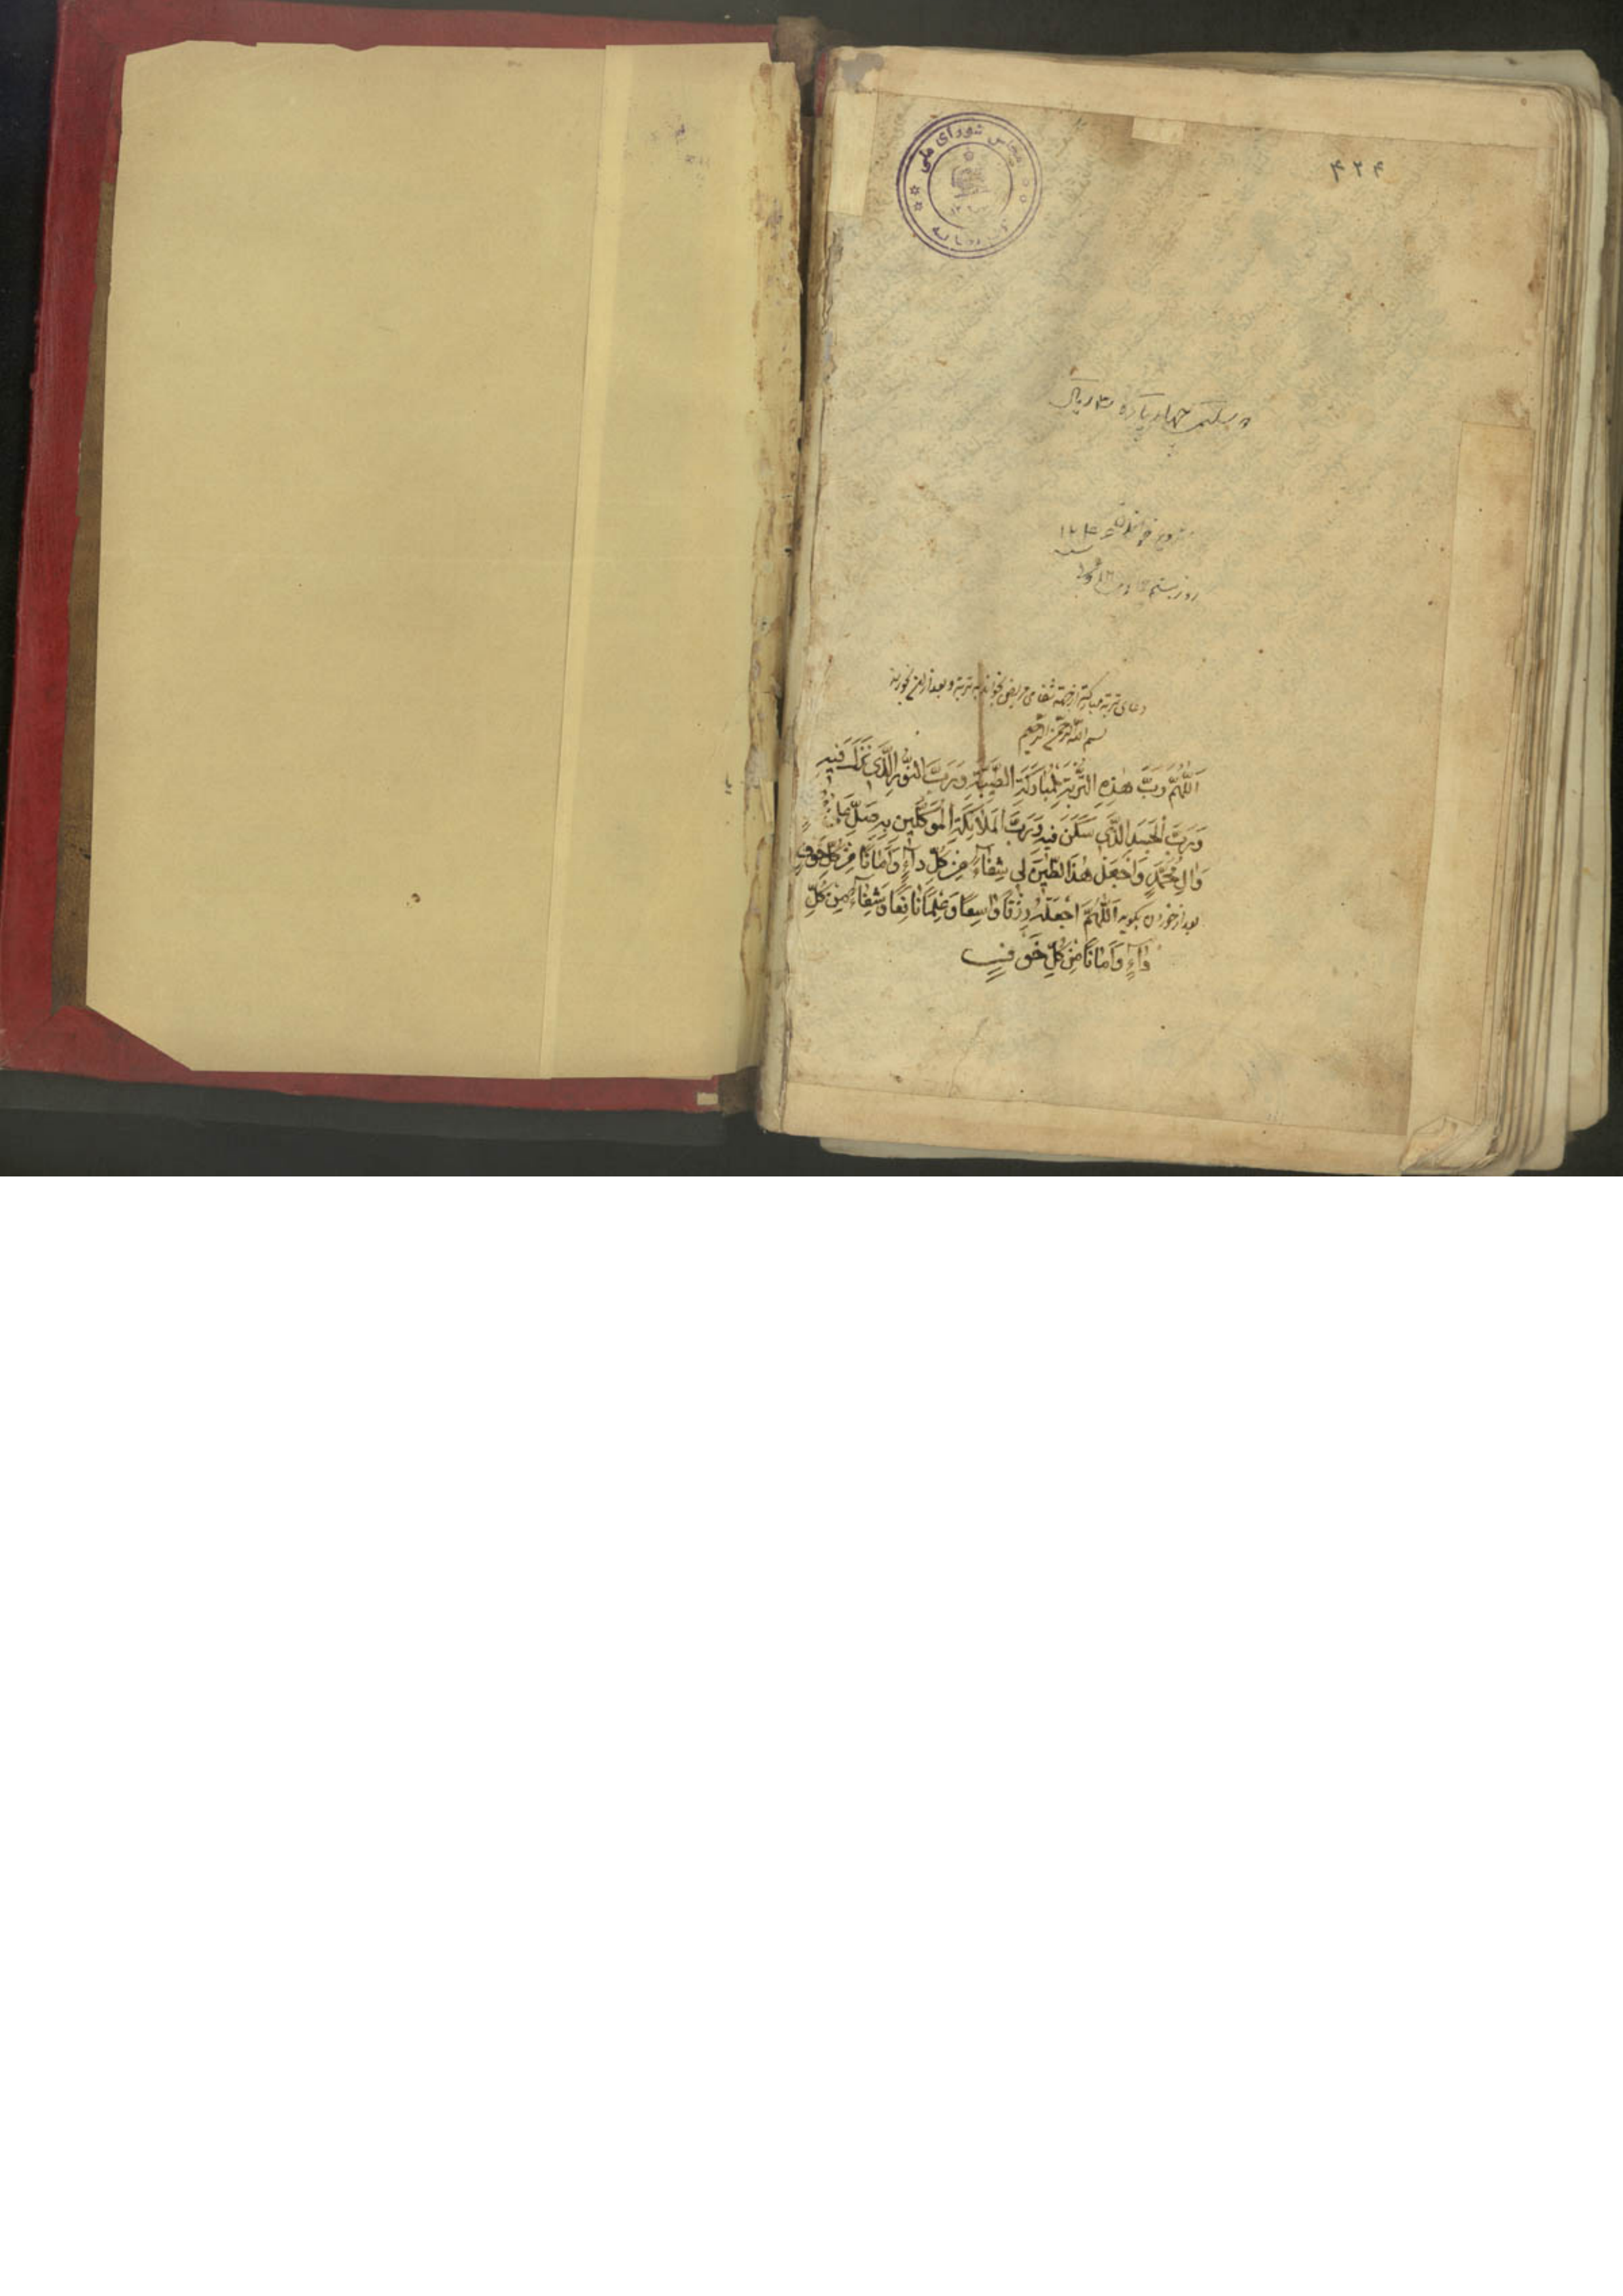 مجلس شورای ملی
۴۲۴
چهار پاره
روز
دعای تربة مبارکة از جهة شفای مریض بخواند به تربة و بعد از آن بخورند
بسم الله الرحمن الرحیم
اَللّٰهُمَّ رَبَّ هٰذِهِ التُّرْبَةِ الْمُبٰارَكَةِ الطَّيِّبَةِ وَرَبَّ النُّورِ الَّذِي نَزَلَ فِيهِ
وَرَبَّ الْجَسَدِ الَّذِي سَكَنَ فِيهِ وَرَبَّ الْمَلٰائِكَةِ الْمُوَكَّلِينَ بِهِ صَلِّ عَلىٰ
وَاٰلِ مُحَمَّدٍ وَاجْعَلْ هٰذَا الطِّينَ لِي شِفٰاءً مِنْ كُلِّ دٰاءٍ وَاَمٰانًا مِنْ كُلِّ خَوْفٍ
بعد از خوردن بگوید اَللّٰهُمَّ اجْعَلْهُ رِزْقًا وٰاسِعًا وَعِلْمًا نٰافِعًا وَشِفٰاءً مِنْ كُلِّ
دٰاءٍ وَاَمٰانًا مِنْ كُلِّ خَوْفٍ